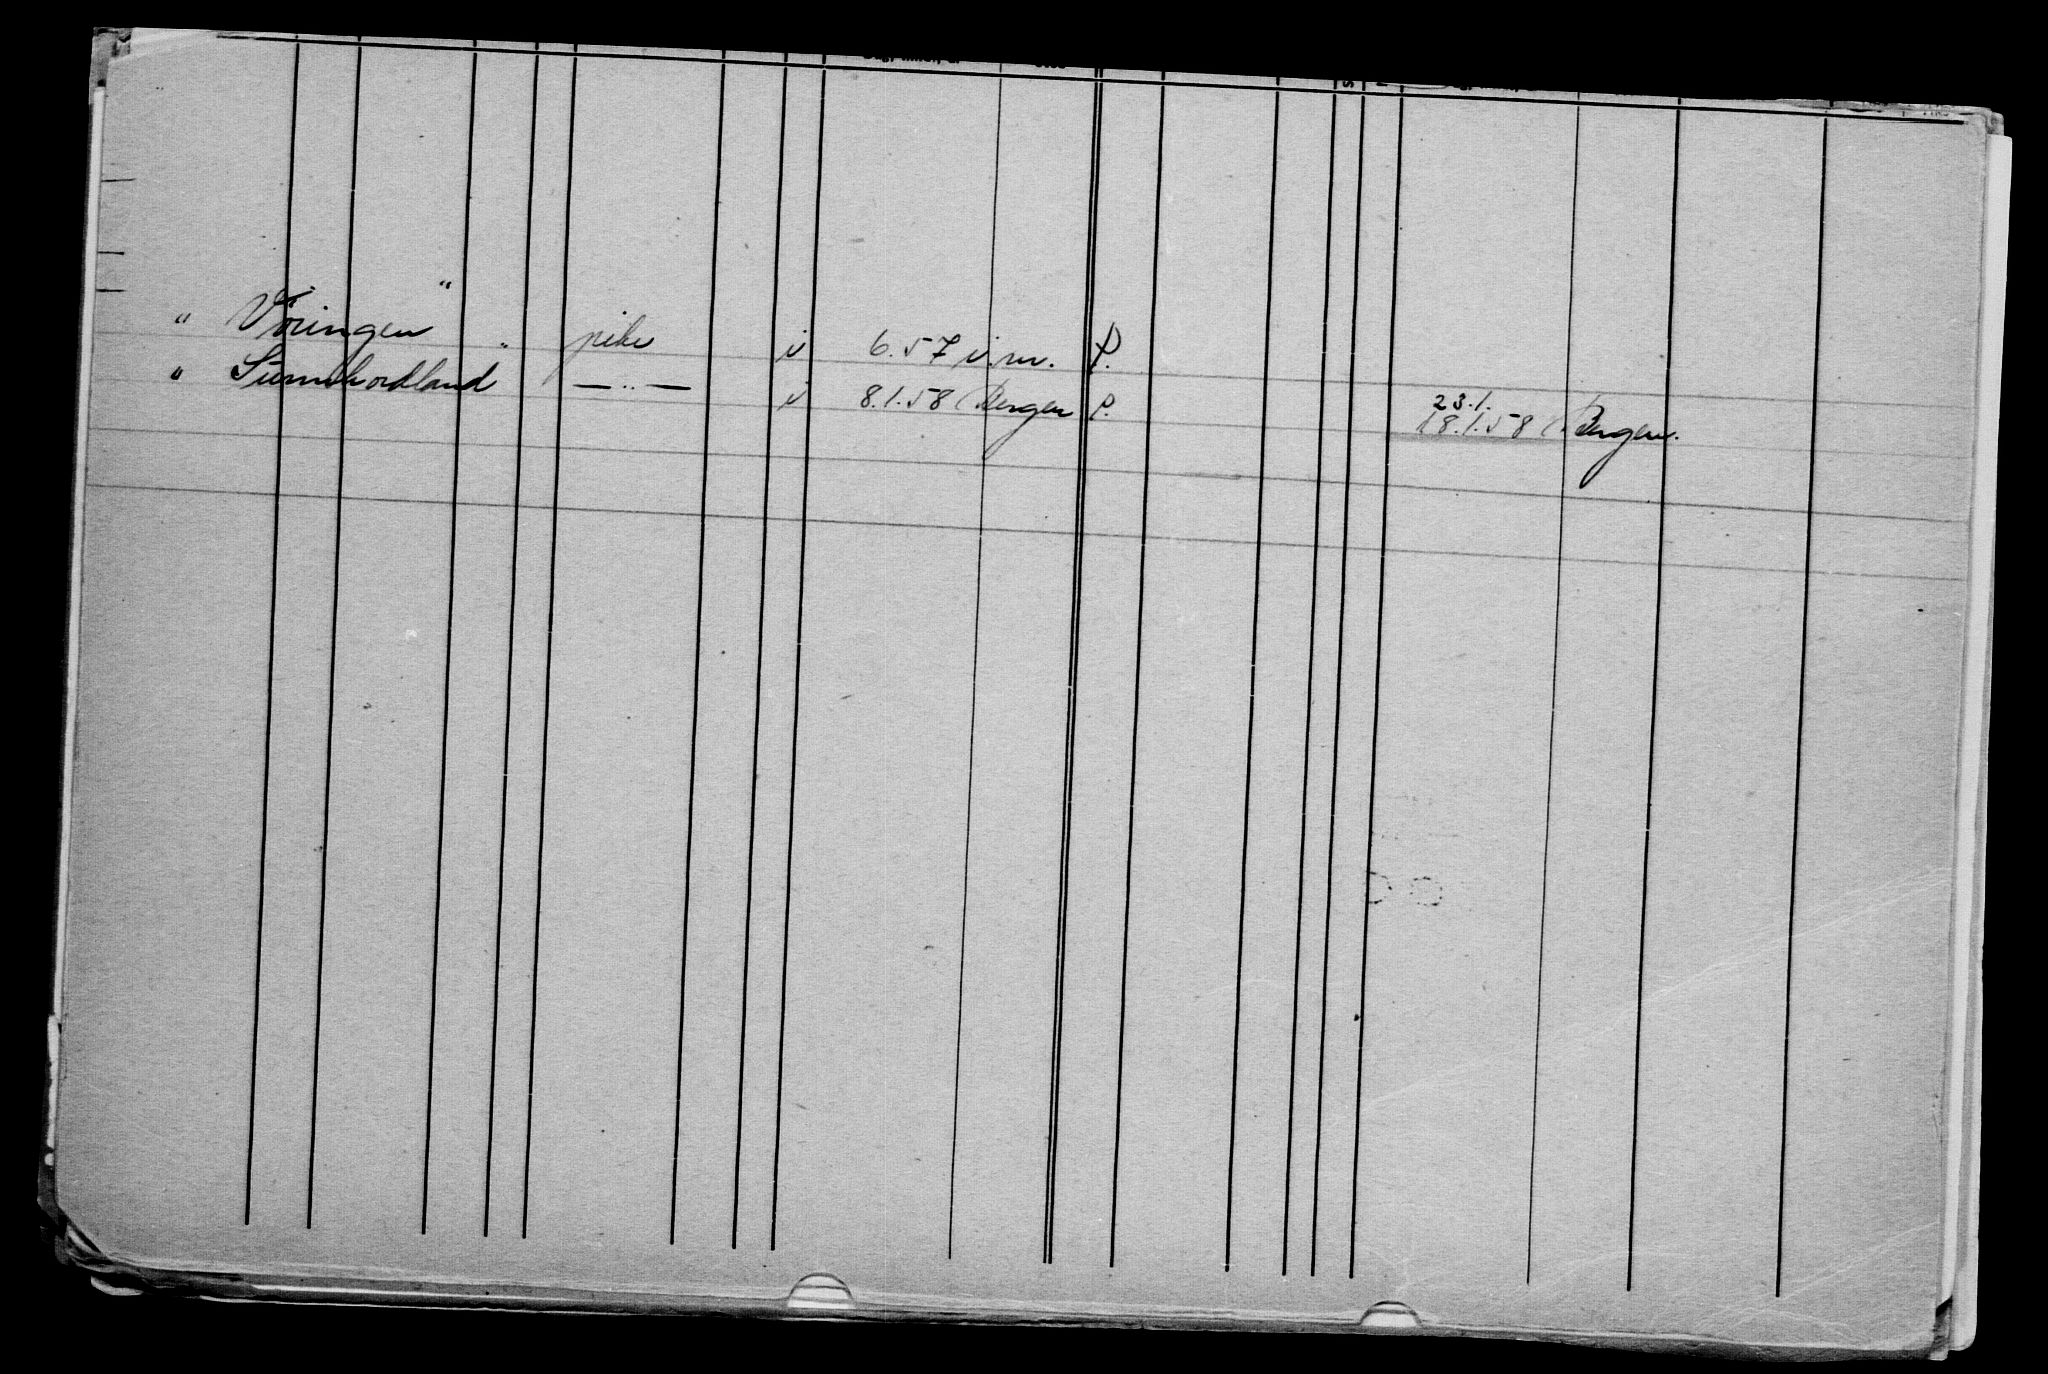 " Vöringen " pike i 6.57 i.m. P.
" Sunnhordland " —..— i 8.1.58 Bergen P. 23.1.
18.1.58 Bergen.